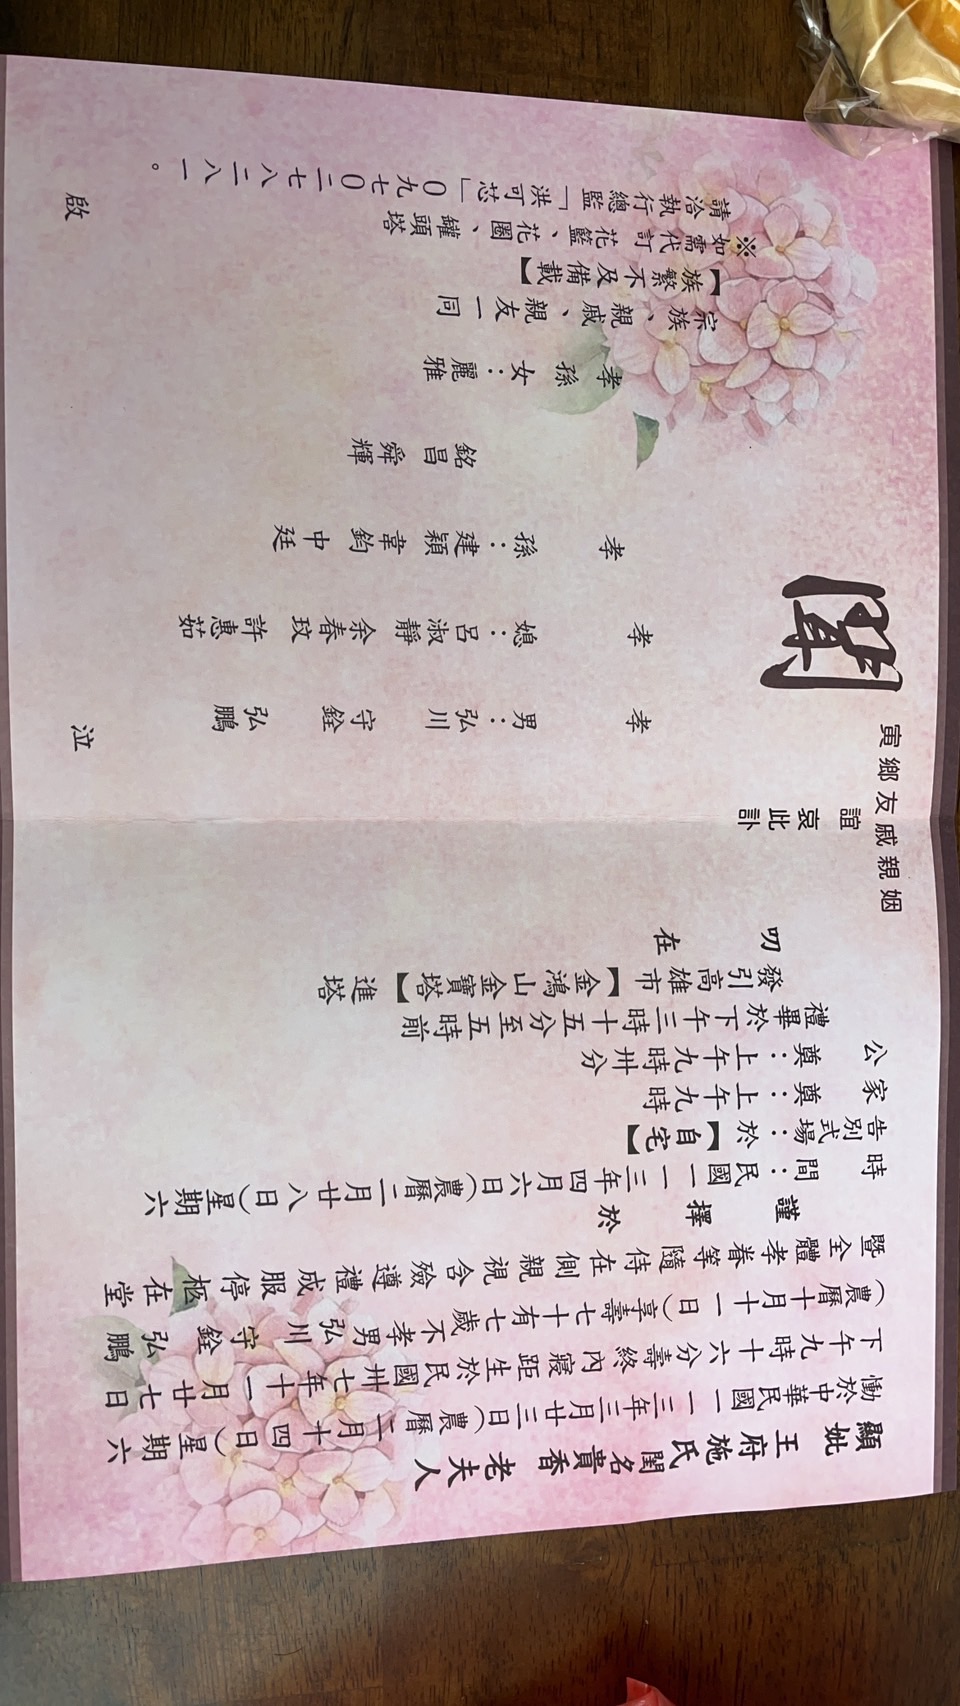 顯妣王府施氏閨名貴香老夫人
慟於中華民國一一三年三月廿三日（農曆二月十四日）星期六
下午九時十六分壽終內寢距生於民國卅七年十一月廿七日
（農曆十月十一日）享壽七十有七歲不孝男弘川守銓弘鵬
暨全體孝眷等隨侍在側親視含殮遵禮成服停柩在堂
謹擇於
時間：民國一一三年四月六日（農曆二月廿八日）星期六
告別式場：於【自宅】
家奠：上午九時
公奠：上午九時卅分
禮畢於下午三時十五分至五時前
發引高雄市【金鴻山金寶塔】進塔
叨在
姻親戚友鄉寅
誼哀此訃
聞
孝男：弘川守銓弘鵬
泣
孝媳：呂淑靜余春玟許惠茹
孝孫：建穎韋鈞中廷
銘昌舜輝
孝孫女：麗雅
宗族、親戚、親友一同
【族繁不及備載】
※如需代訂花籃、花圈、罐頭塔
請洽執行總監「洪可芯」０九七０二七八二八一。
啟